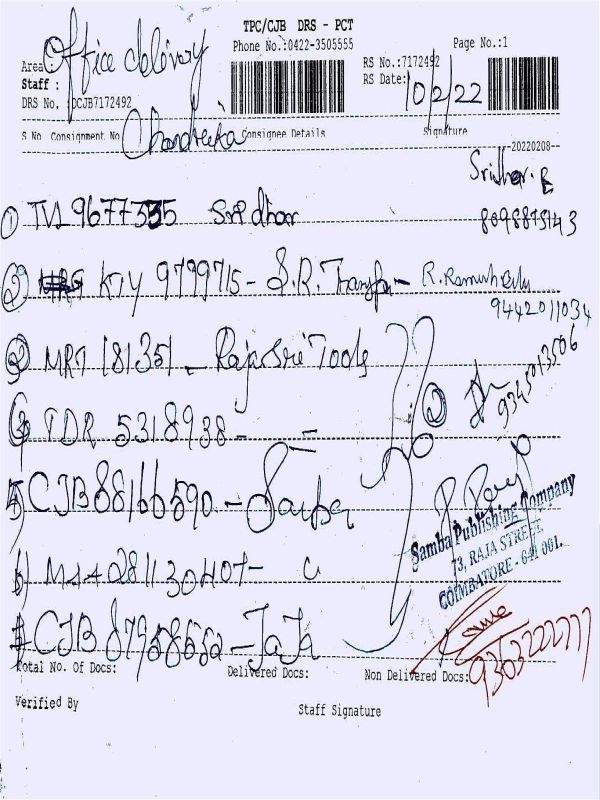 TPC/CJB DRS - PCT
Phone No.:0422-3505555
Page No.:1
Area: Office delivery
RS No.:7172492
Staff :
RS Date: 10/2/22
DRS No. :DCJB7172492
S No Consignment No Consignee Details Signature
--20220208--
① TVL 9677335 Sridhar
8098875143
② KTY 9799715 - S.R.
9442011034
② MRT 181351 - Rajasri Tools
② 9345013506
③ TDR 5318938 -
CJB 88166590 -
Samba Publishing Company
73, RAJA STREET,
COIMBATORE - 641 001.
CJB 87958652 - JaJa
Total No. Of Docs: Delivered Docs: Non Delivered Docs:
Verified By
Staff Signature